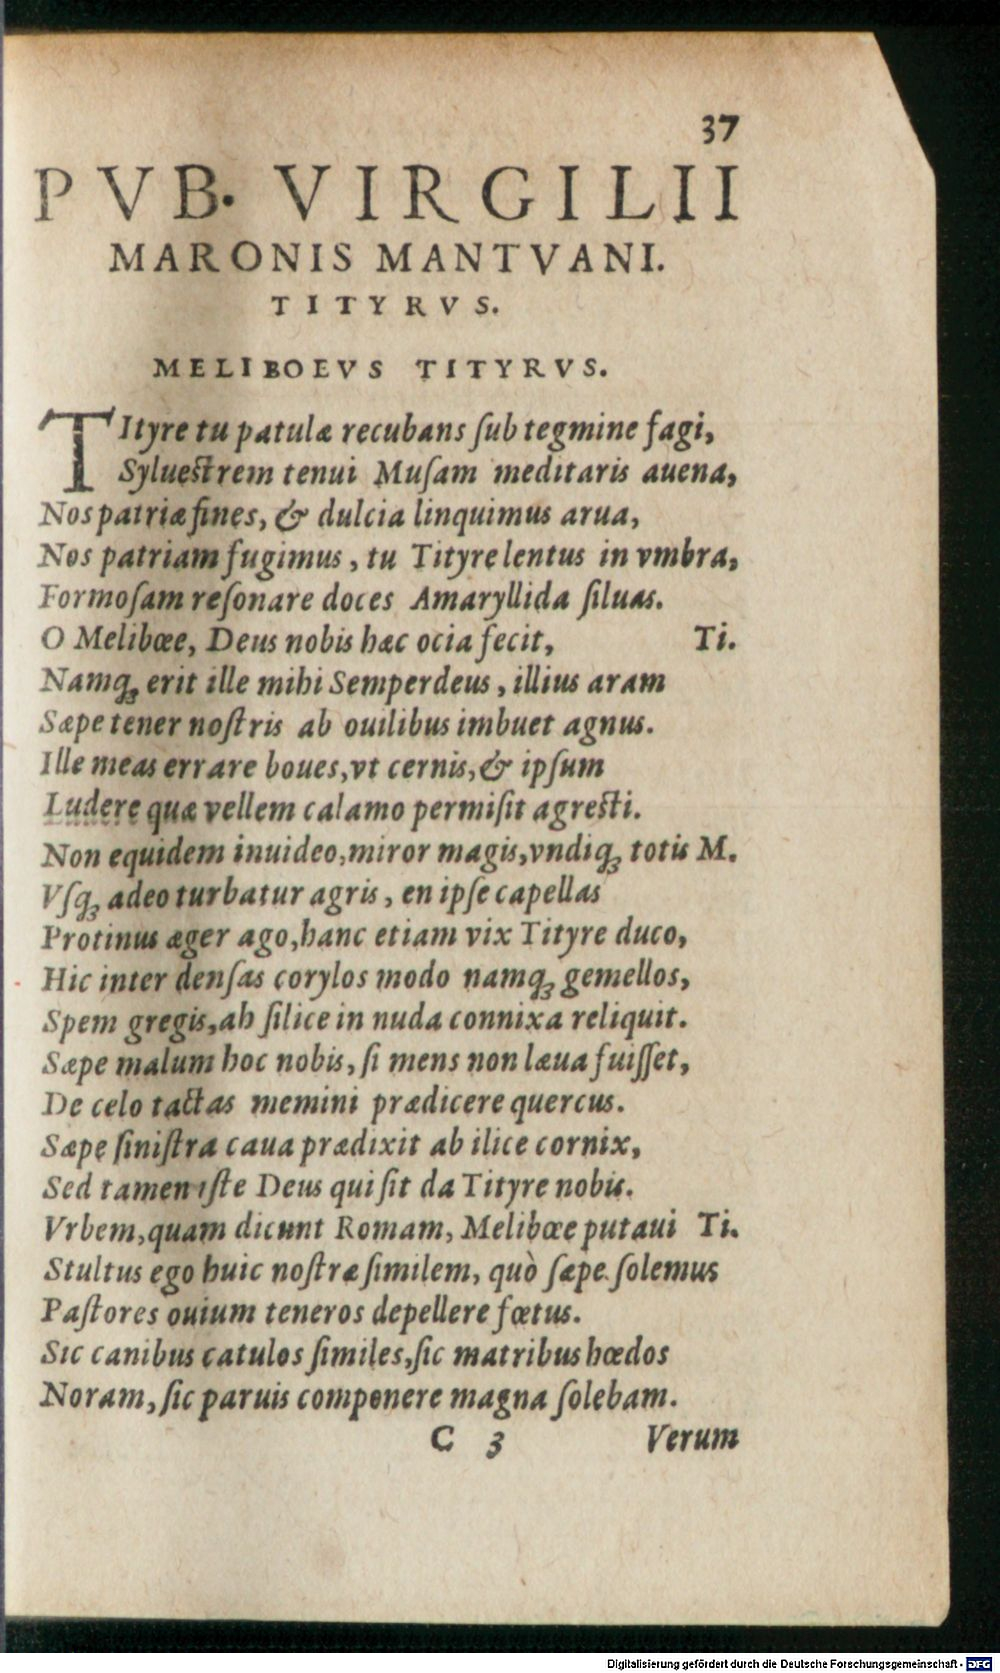 37
PVB. VIRGILII
MARONIS MANTVANI.
TITYRVS.
MELIBOEVS TITYRVS.
TItyre tu patulæ recubans ſub tegmine fagi,
Sylueſtrem tenui Muſam meditaris auena,
Nos patriæ fines, & dulcia linquimus arua,
Nos patriam fugimus, tu Tityre lentus in vmbra,
Formoſam reſonare doces Amaryllida ſiluas.
O Melibœe, Deus nobis hæc ocia fecit, Ti.
Namq; erit ille mihi Semper deus, illius aram
Sæpe tener noſtris ab ouilibus imbuet agnus.
Ille meas errare boues, vt cernis, & ipſum
Ludere quæ vellem calamo permiſit agreſti.
Non equidem inuideo, miror magis, vndiq; totis M.
Vſq; adeo turbatur agris, en ipſe capellas
Protinus æger ago, hanc etiam vix Tityre duco,
Hic inter denſas corylos modo namq; gemellos,
Spem gregis, ah ſilice in nuda connixa reliquit.
Sæpe malum hoc nobis, ſi mens non læua fuiſſet,
De celo tactas memini prædicere quercus.
Sæpe ſiniſtra caua prædixit ab ilice cornix,
Sed tamen iſte Deus qui ſit da Tityre nobis.
Vrbem, quam dicunt Romam, Melibœe putaui Ti.
Stultus ego huic noſtræ ſimilem, quò ſæpe ſolemus
Paſtores ouium teneros depellere fœtus.
Sic canibus catulos ſimiles, ſic matribus hœdos
Noram, ſic paruis componere magna ſolebam.
C 3 Verum
Digitalisierung gefördert durch die Deutsche Forschungsgemeinschaft - DFG